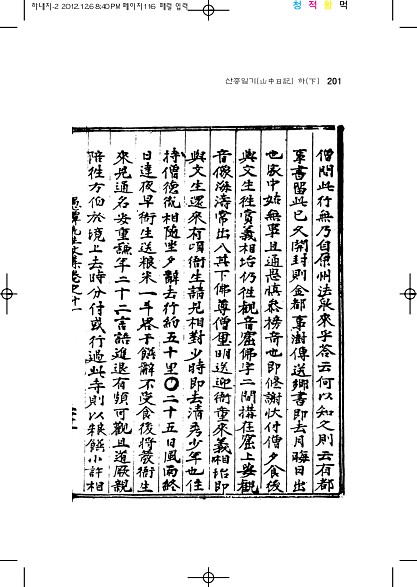 하네지-2 2012.12.6 8:40 PM 페이지116 제령 입력
청 적 황 먹
산중일기(山中日記) 하(下) 201
僧問此行無乃自原州法泉來乎答云何以知之則云有都
事書留此已久開封則金都事澍傳送鄕書卽去月晦日出
也家中姑無事且通愚愼忝榜奇也卽修謝狀付僧夕食後
與文生往賞義相坮仍往觀音窟佛宇二間搆在窟上安觀
音像海濤常出入其下佛尊僧重明送迎衙童來義相坮卽
與文生還來有頃衙生請見相對少時卽去淸秀少年也住
持僧德 相隨坐夕辭去行約五十里〇二十五日風雨終
日達夜早衙生送粮米一斗 于饌辭不受食後將發衙生
來見通名安重謙年二十二言語進退有頗可觀且道厥親
陪往方伯於境上去時分付或行過此寺則以粮饌小許相
愚潭先生文集卷之十一